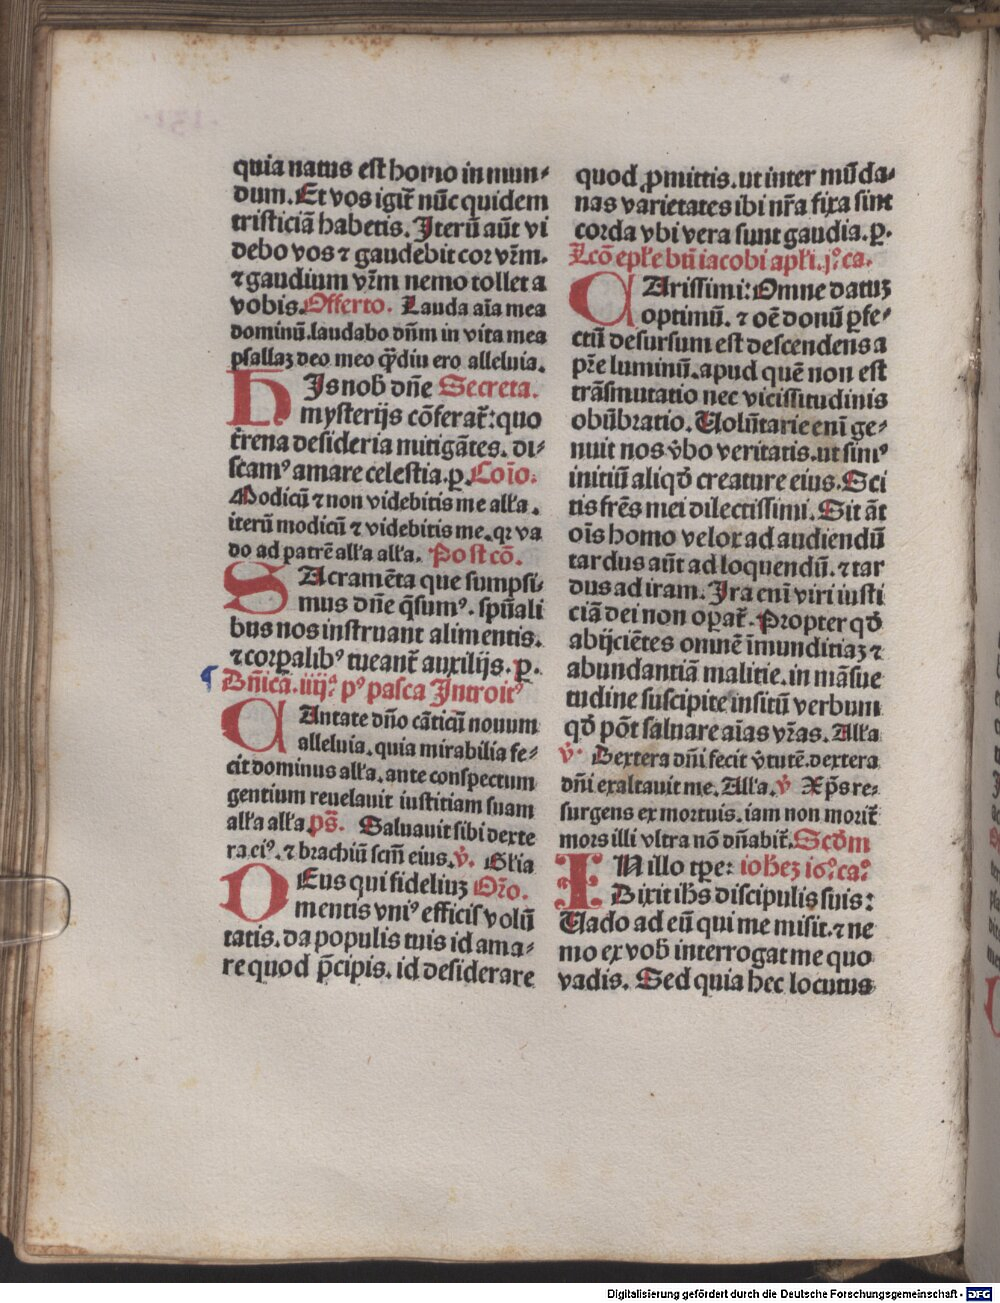 quia natus est homo in mun⸗
dum. Et vos igit̃ nũc quidem
tristiciã habetis. Iterũ aũt vi
debo vos ⁊ gaudebit cor vr̃m.
⁊ gaudium vr̃m nemo tollet a
vobis. Offerto. Lauda aĩa mea
dominũ. laudabo dñm in vita mea
psallaʒ deo meo q̃diu ero alleluia.
HIs nob dñe Secreta.
mysterijs cõferat̃: quo
t̃rena desideria mitigãtes. di⸗
scamꝰ amare celestia. ꝑ. Cõio.
Modicũ ⁊ non videbitis me allꝛa.
iterũ modicũ ⁊ videbitis me. qꝛ va
do ad patrẽ alla alla. Postcõ.
SAcramẽta que sumpsi⸗
mus dñe q̃sumꝰ. spũali
bus nos instruant alimentis.
⁊ corꝑalibꝰ tueant̃ auxilijs. ꝑ.
Dñica. iiij. pꝰ pasca Introitꝰ
CAntate dño cãticũ nouum
alleluia. quia mirabilia fe⸗
cit dominus alla. ante conspectum
gentium reuelauit iustitiam suam
alla alla ps̃. Saluauit sibi dexte
ra eiꝰ. ⁊ brachiũ scm̃ eius. v̾. Glia
DEus qui fideliuʒ Oro.
mentis vniꝰ efficis volũ
tatis. da populis tuis id ama⸗
re quod p̃cipis. id desiderare
quod ꝓmittis. ut inter mũda⸗
nas varietates ibi nr̃a fixa sint
corda vbi vera sunt gaudia. ꝑ.
Lcõ epłe bti iacobi apłi. j. ca.
CArissimi: Omne datuʒ
optimũ. ⁊ oẽ donũ ꝑfe⸗
ctũ desursum est descendens a
pr̃e luminũ. apud quẽ non est
trãsmutatio nec vicissitudinis
obũbratio. Volũtarie eni ge⸗
nuit nos v̾bo veritatis. ut simꝰ
initiũ aliqd̾ creature eius. Sci
tis fr̃es mei dilectissimi. Sit ãt
oĩs homo velox ad audiendũ
tardus aũt ad loquendũ. ⁊ tar
dus ad iram. Ira eni viri iusti
ciã dei non oꝑat̃. Propter qd̾
abijciẽtes omnẽ ĩmunditiaʒ ⁊
abundantiã malitie. in mãsue
tudine suscipite insitũ verbum
qd̾ põt saluare aĩas vr̃as. Alla
v̾. Dextera dñi fecit v̾tutẽ. dextera
dñi exaltauit me. Alla. v̾ Xp̃s re⸗
surgens ex mortuis. iam non morit̃
mors illi vltra nõ dñabit̃. Scd̾m
IN illo tꝑe: iohez iꝰ ca
Dixit ihs discipulis suis:
Vado ad eũ qui me misit. ⁊ ne
mo ex vob̾ interrogat me quo
vadis. Sed quia hec locutus
Digitalisierung gefördert durch die Deutsche Forschungsgemeinschaft - DFG